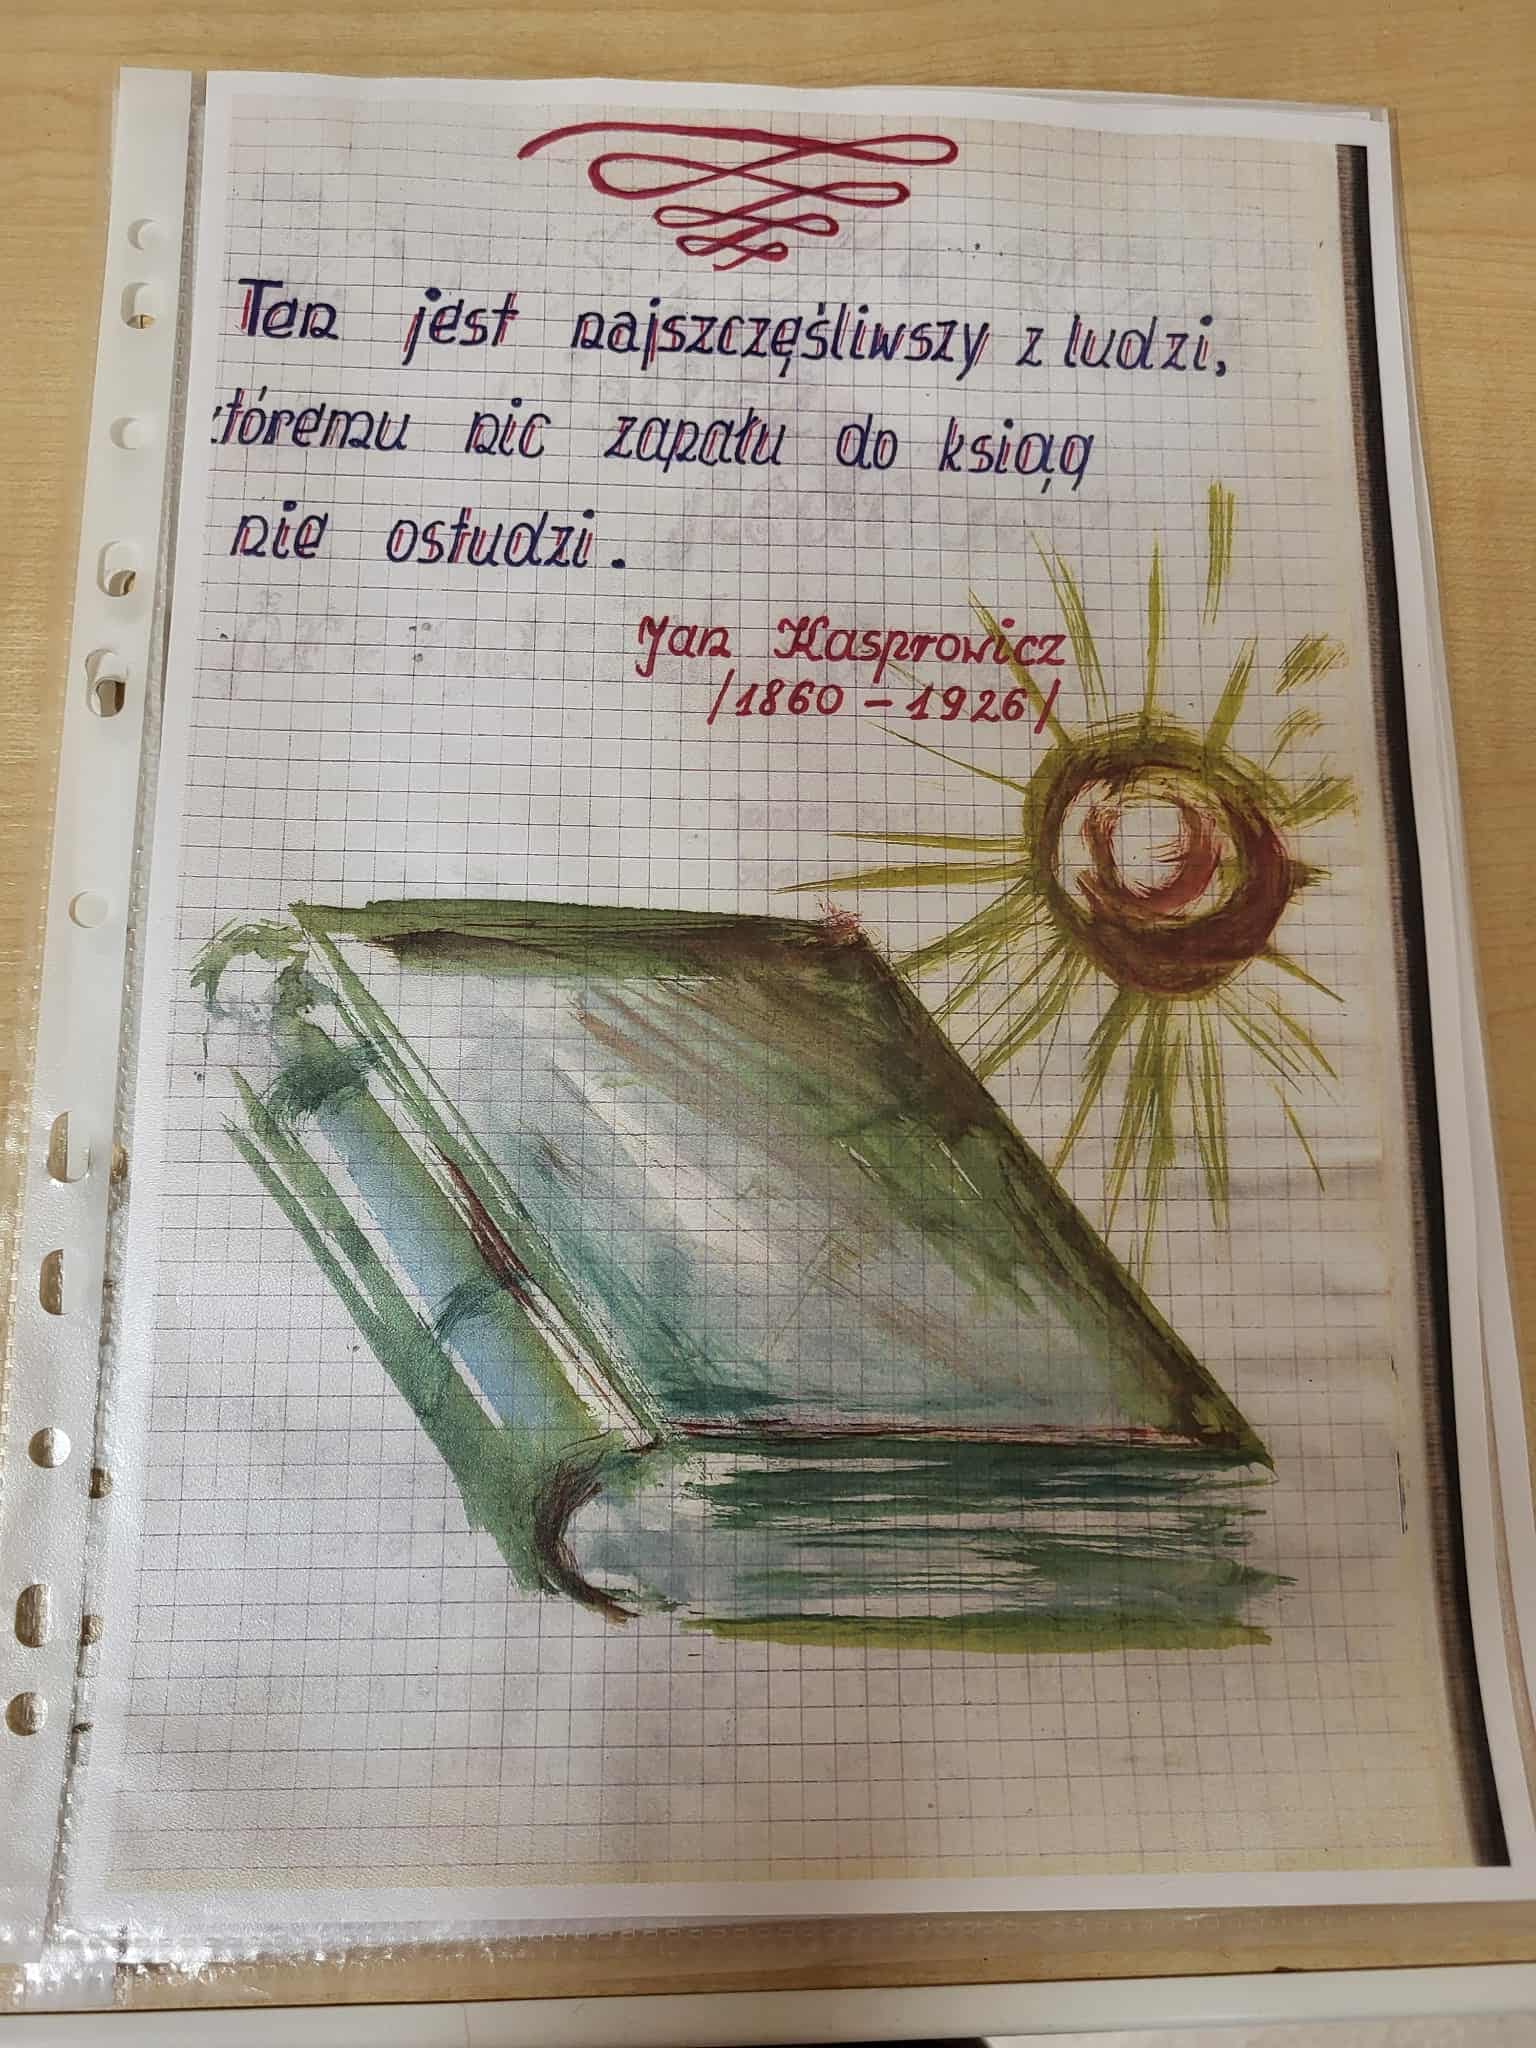 Ten jest najszczęśliwszy z ludzi,
któremu nic zapału do ksiąg
nie ostudzi.
Jan Kasprowicz
/1860 - 1926/